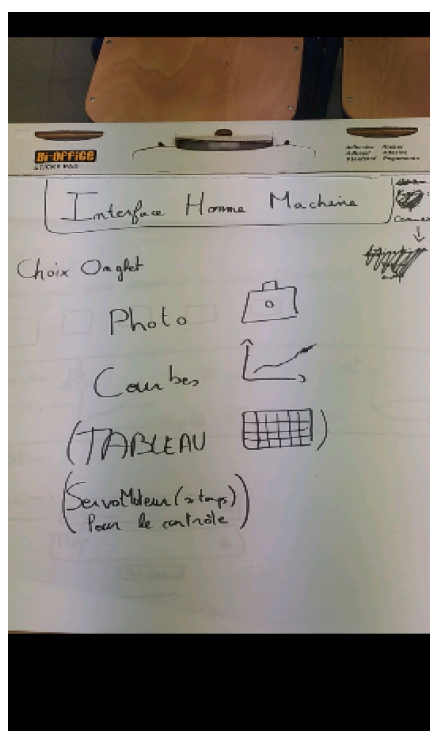 Bi-OFFiCE
Interface Homme Machine
Choix Onglet
Photo
Courbes
(TABLEAU )
(ServoMoteur (
Pour le contrôle )